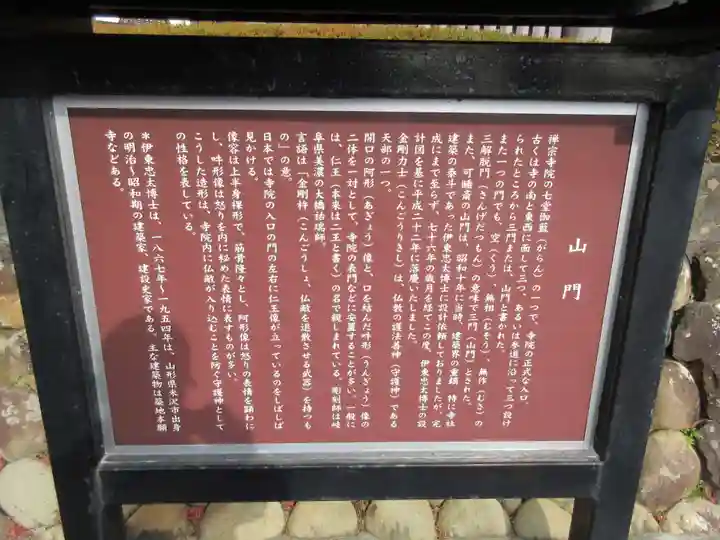 山門
禅宗寺院の七堂伽藍（がらん）の一つで、寺院の正式な入口。
古くは寺の南と東西に面して三つ、あるいは参道に沿って三つ設け
られたところから三門または、山門と書かれた。
また一つの門でも、空（くう）、無相（むそう）、無作（むさ）の
三解脱門（さんげだつもん）の意味で三門（山門）とされた。
また、可睡斎の山門は、昭和十年に当時、建築界の重鎮、特に寺社
建築の泰斗であった伊東忠太博士に設計依頼しておりましたが、完
成にまで至らず、七十六年の歳月を経てこの度、伊東忠太博士の設
計図を基に平成二十二年に落慶いたしました。
金剛力士（こんごうりきし）は、仏教の護法善神（守護神）である
天部の一つ。
開口の阿形（あぎょう）像と、口を結んだ吽形（うんぎょう）像の
二体を一対として、寺院の表門などに安置することが多い。一般に
は、仁王（本来は二王と書く）の名で親しまれている。彫刻師は岐
阜県美濃の大橋祐瑞師。
言語は「金剛杵（こんごうしょ、仏敵を退散させる武器）を持つも
の」の意。
日本では寺院の入口の門の左右に仁王像が立っているのをしばしば
見かける。
像容は上半身裸形で、筋骨隆々とし、阿形像は怒りの表情を顕わに
し、吽形像は怒りを内に秘めた表情に表すものが多い。
こうした造形は、寺院内に仏敵が入り込むことを防ぐ守護神として
の性格を表している。
＊伊東忠太博士は、一八六七年～一九五四年は、山形県米沢市出身
の明治～昭和期の建築家、建設史家である。主な建築物は築地本願
寺などある。